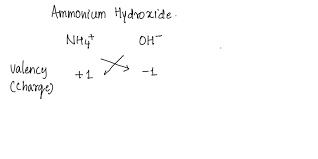 Ammonium Hydroxide.
NH₄⁺ OH⁻
Valency +1 -1
(Charge)